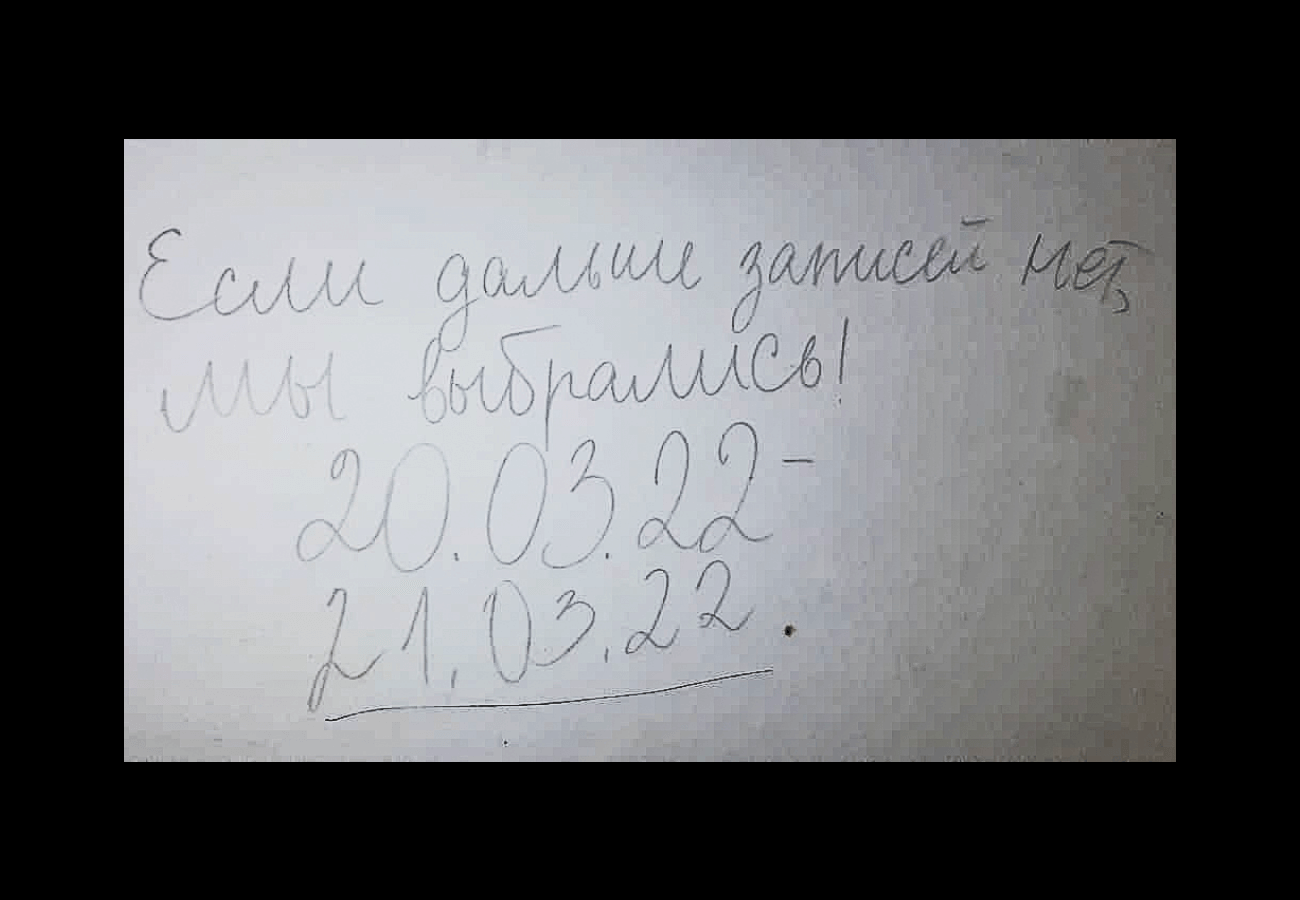 Если дальше записей нет,
мы выбрались!
20.03.22-
21.03.22.